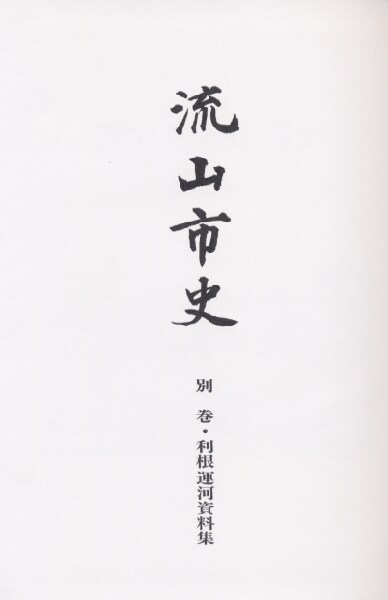 流山市史
別巻・利根運河資料集